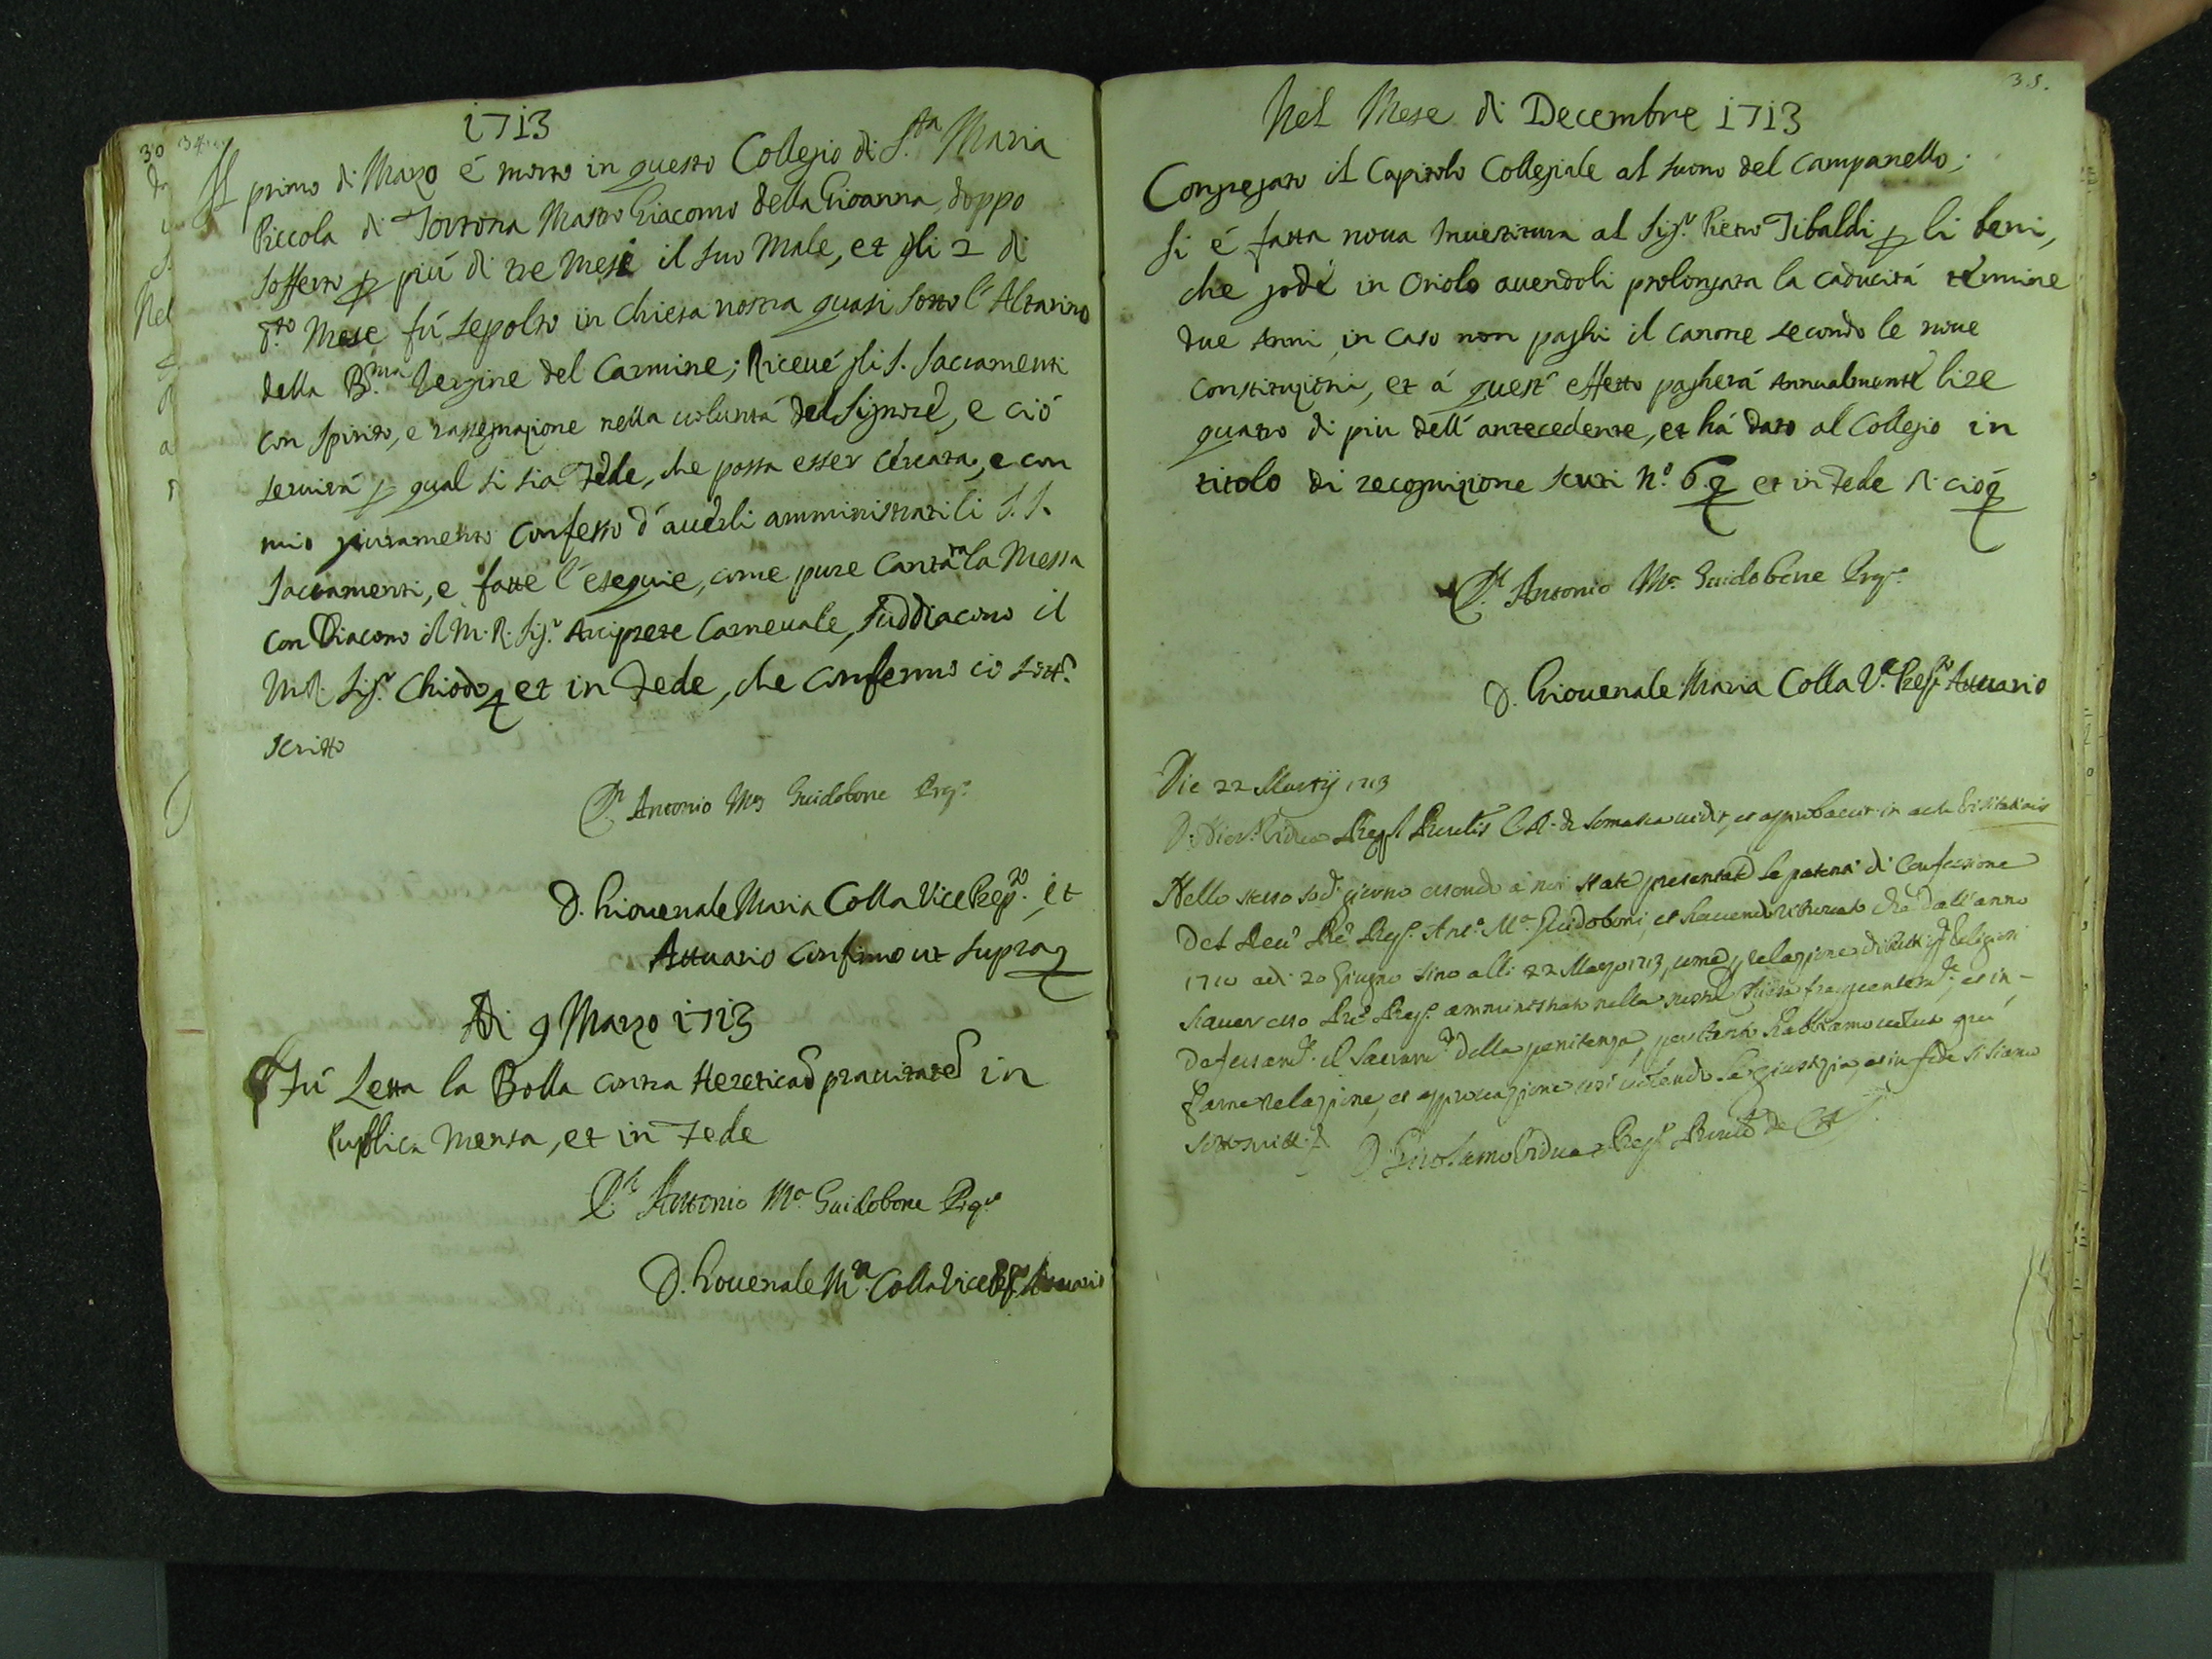 30 34
1713
Il primo di Marzo é morto in questo Collegio di S.ta Maria
Piccola di Tortona Mastro Giacomo della Gioanna, doppo
sofferto p piú di tre Mesi il suo Male, et gli 2 di
d.to Mese fú sepolto in Chiesa nostra quasi sotto l'Altarino
della B.ma Vergine del Carmine; Riceué gli S. Sacramenti
con spirito, e rassegnazione nella uolontá del Signore, e ció
seruirá p qual si sia Fede, che possa esser cércata, e con
mio giuramento confesso d'auerli amministrati li S.S.
Sacramenti, e fatte l'esequie, come pure Cantata la Messa
con Diacono il M.R. Sig.r Arciprete Carneuale, Suddiacono il
M.R. Sig.r Chiodo et in Fede, che confermo ció sott.
scritto
D. Antonio M.a Guidobone
D. Giouenale Maria Colla Vice Prep.to, et
Attuario Confirmo ut supra
Adi 9 Marzo 1713
Fú Letta la Bolla contra Hereticas prauitates in
Publica Mensa, et in Fede
D. Antonio M.a Guidobone
D. Giouenale M.a Colla Vice Attuario
35.
Nel Mese di Decembre 1713
Congregato il Capitolo Collegiale al suono del Campanello;
si é fatta noua Inuestitura al Sig.r Pietro Tibaldi p li beni,
che gode in Oriolo auendoli prolongata la caducitá termine
due Anni in caso non paghi il Canone secondo le noue
constituzioni, et á quest' effetto pagherá Annualmente lire
quatro di piu dell' antecedente, et há dato al Collegio in
titolo di recognizione scuti N.o 6 et in Fede di ció
D. Antonio M.a Guidobone
D. Giouenale Maria Colla V.e Prep.to Attuario
Die 22 Martij 1713
D. Vidua de Somasca uidit, et approbauit in actu Visitationis
Nello stesso giorno essendo a noi state presentate le patenti di Confessione
Del Ant.o M.a Guidoboni, et hauendo che dall' anno
1710 adi 20 Giugno sino alli 22 Marzo 1713, come relazione di
hauer esso amministrato nella nostra Chiesa et in-
il Sacram.to della penitenza, pertanto habbiamo uoluto quí
farne relazione, et approuazione cosí uolendo la giustizia, et in fede si siamo
D. Girolamo Vidua